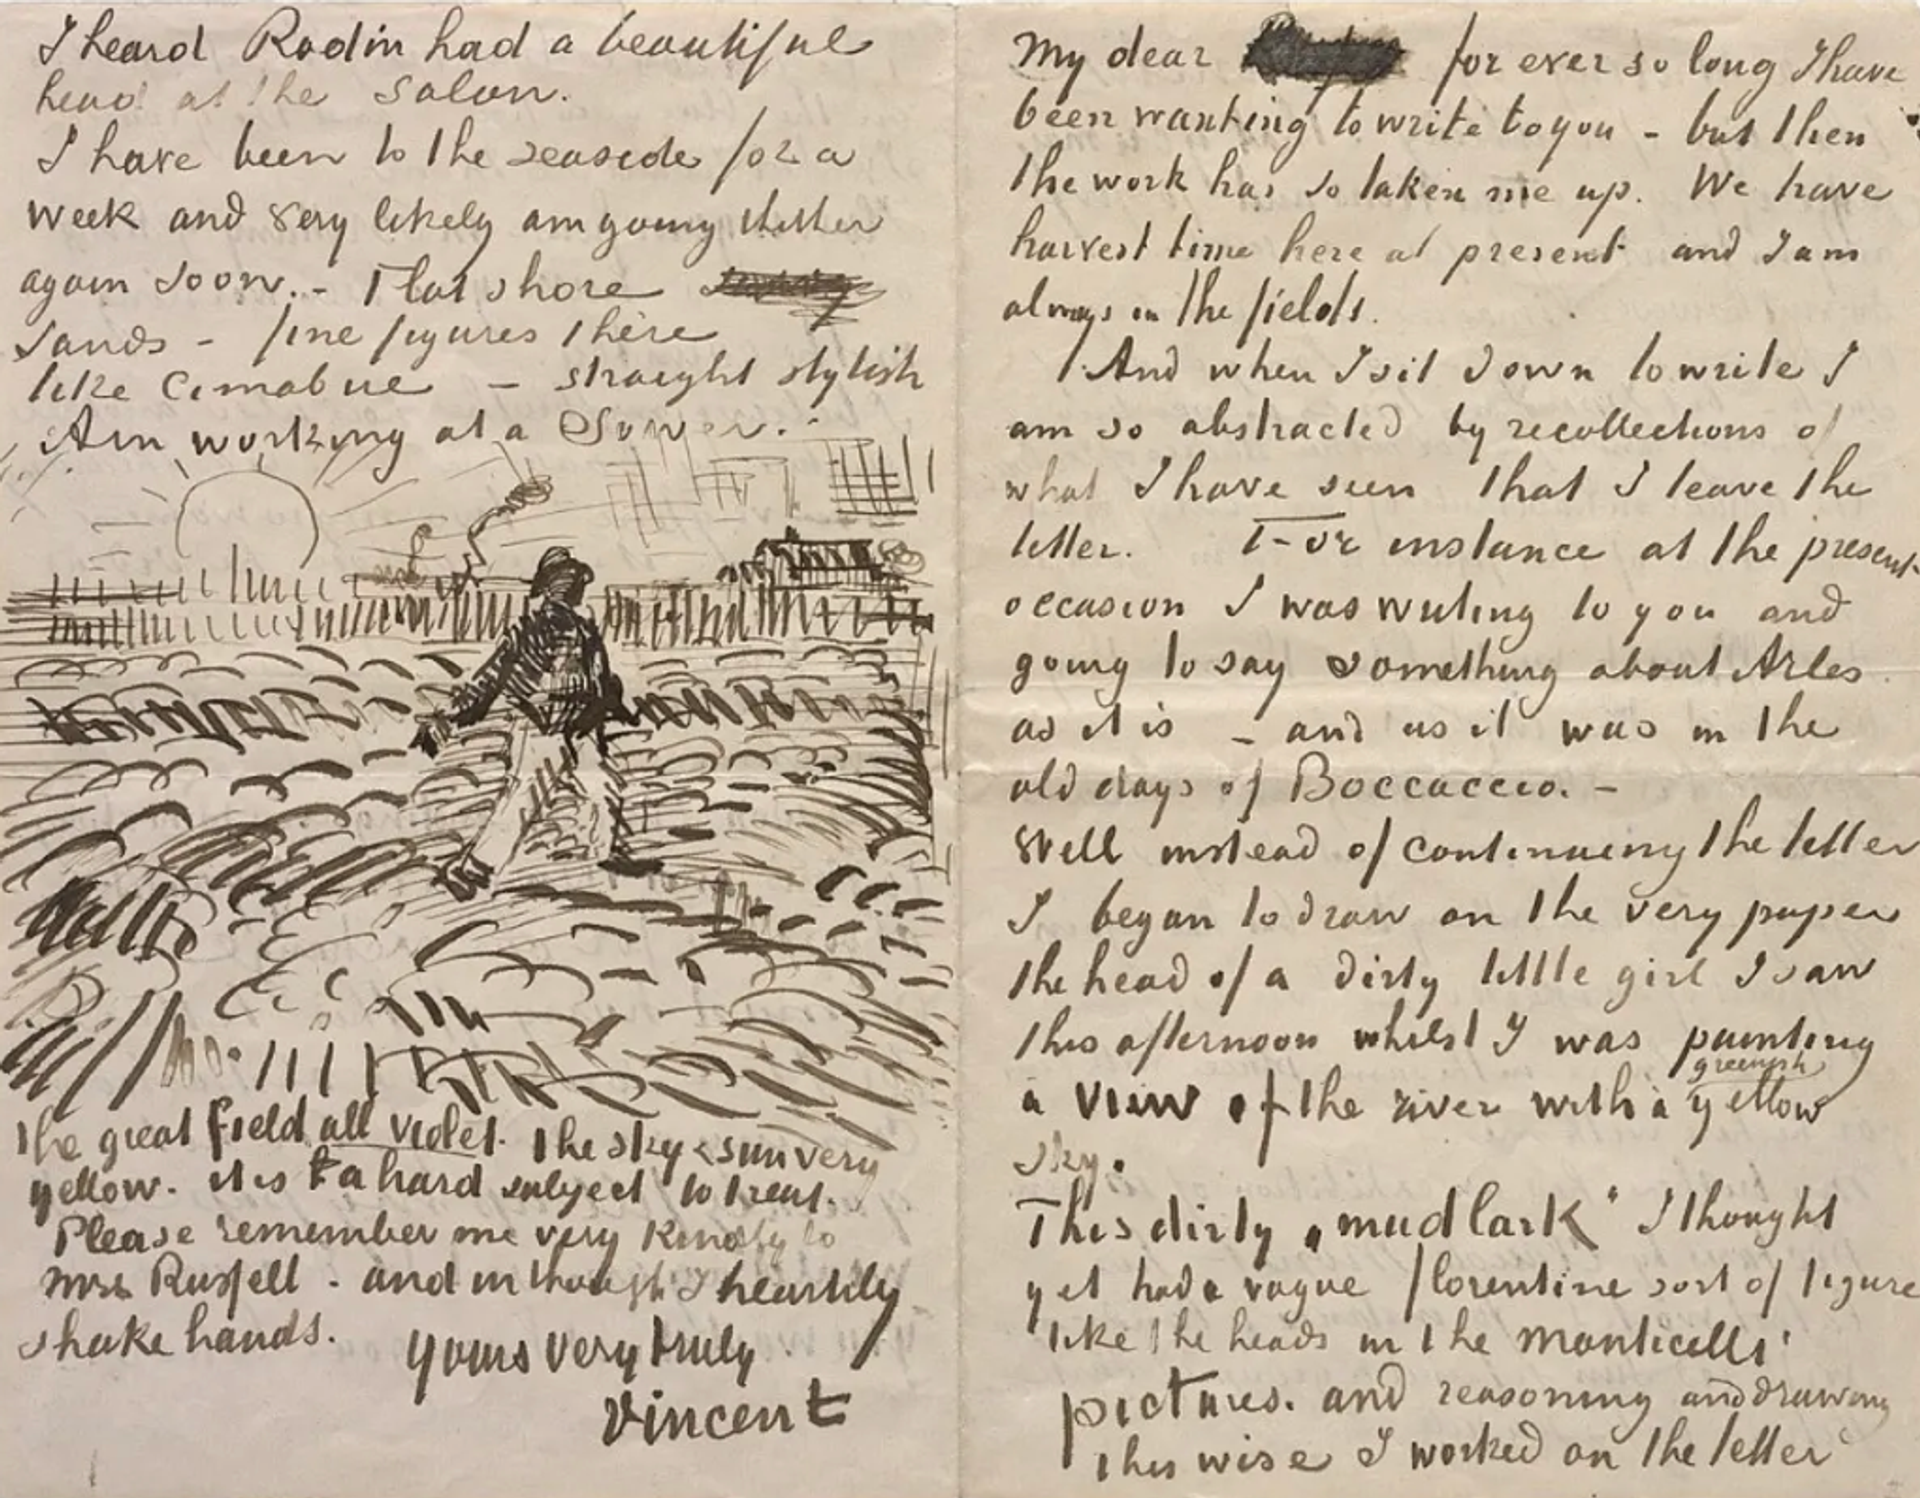 I heard Rodin had a beautiful
head at the Salon.
I have been to the seaside for a
week and very likely am going thither
again soon. - Flat shore
sands - fine figures there
like Cimabue - straight stylish
Am working at a Sower.
the great field all violet. the sky & sun very
yellow. it is a hard subject to treat.
Please remember me very kindly to
mrs Russell - and in thought I heartily
shake hands.
yours very truly
Vincent
My dear for ever so long I have
been wanting to write to you - but then
the work has so taken me up. We have
harvest time here at present and I am
always in the fields.
And when I sit down to write I
am so abstracted by recollections of
what I have seen that I leave the
letter. For instance at the present
occasion I was writing to you and
going to say something about Arles
as it is - and as it was in the
old days of Boccaccio. -
Well instead of continuing the letter
I began to draw on the very paper
the head of a dirty little girl I saw
this afternoon whilst I was painting
a view of the river with a greenish yellow
sky.
This dirty „mudlark" I thought
yet had a vague florentine sort of figure
like the heads in the monticelli
pictures. and reasoning and drawing
this wise I worked on the letter